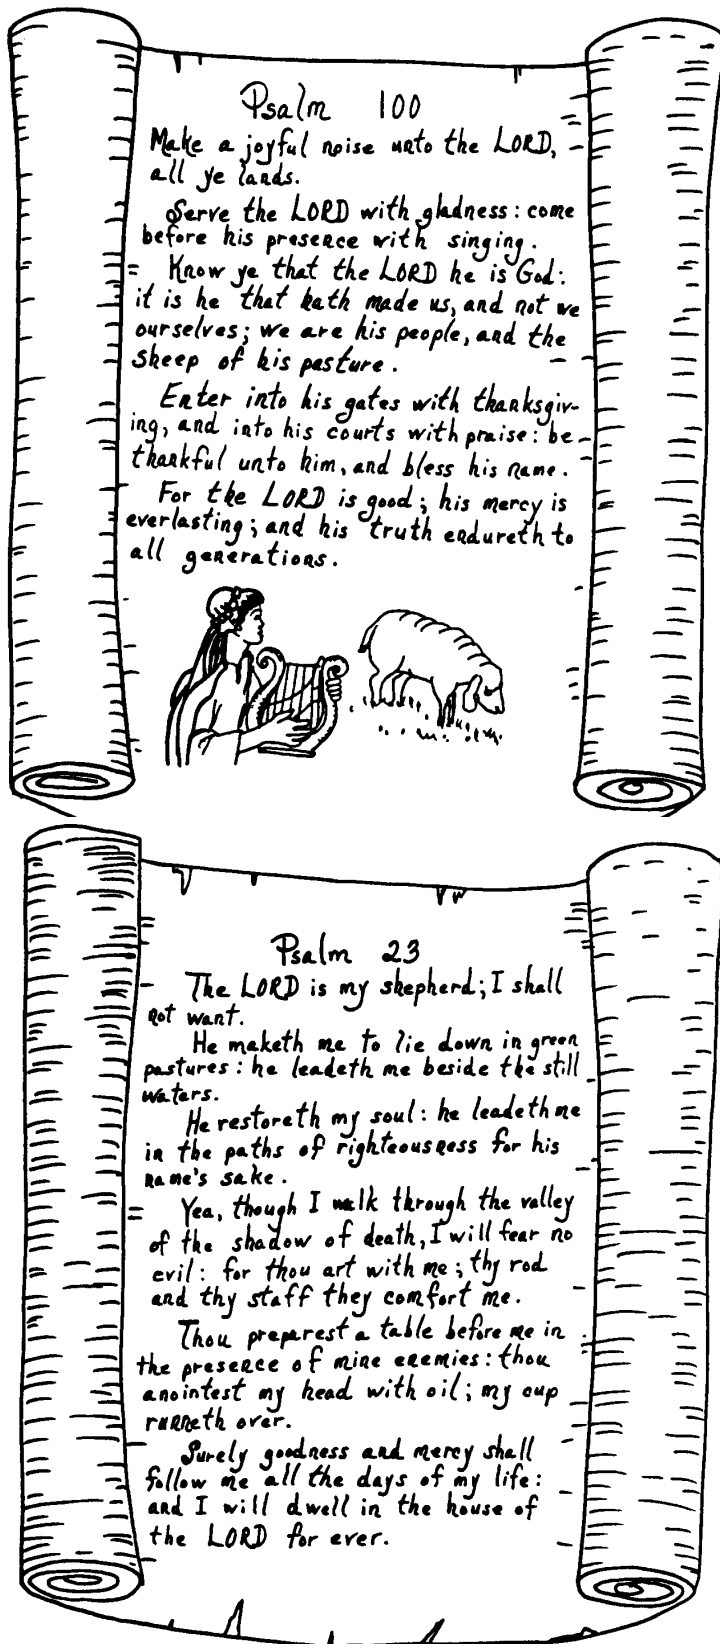 Psalm 100
Make a joyful noise unto the LORD,
all ye lands.
Serve the LORD with gladness: come
before his presence with singing.
Know ye that the LORD he is God:
it is he that hath made us, and not we
ourselves; we are his people, and the
sheep of his pasture.
Enter into his gates with thanksgiv-
ing, and into his courts with praise: be
thankful unto him, and bless his name.
For the LORD is good; his mercy is
everlasting; and his truth endureth to
all generations.
Psalm 23
The LORD is my shepherd; I shall
not want.
He maketh me to lie down in green
pastures: he leadeth me beside the still
waters.
He restoreth my soul: he leadeth me
in the paths of righteousness for his
name's sake.
Yea, though I walk through the valley
of the shadow of death, I will fear no
evil: for thou art with me; thy rod
and thy staff they comfort me.
Thou preparest a table before me in
the presence of mine enemies: thou
anointest my head with oil; my cup
runneth over.
Surely goodness and mercy shall
follow me all the days of my life:
and I will dwell in the house of
the LORD for ever.